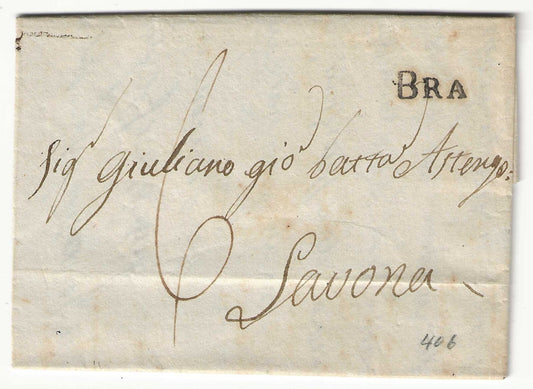 BRA
6
Sigr Giuliano Gio batta Astengo:
Savona
406